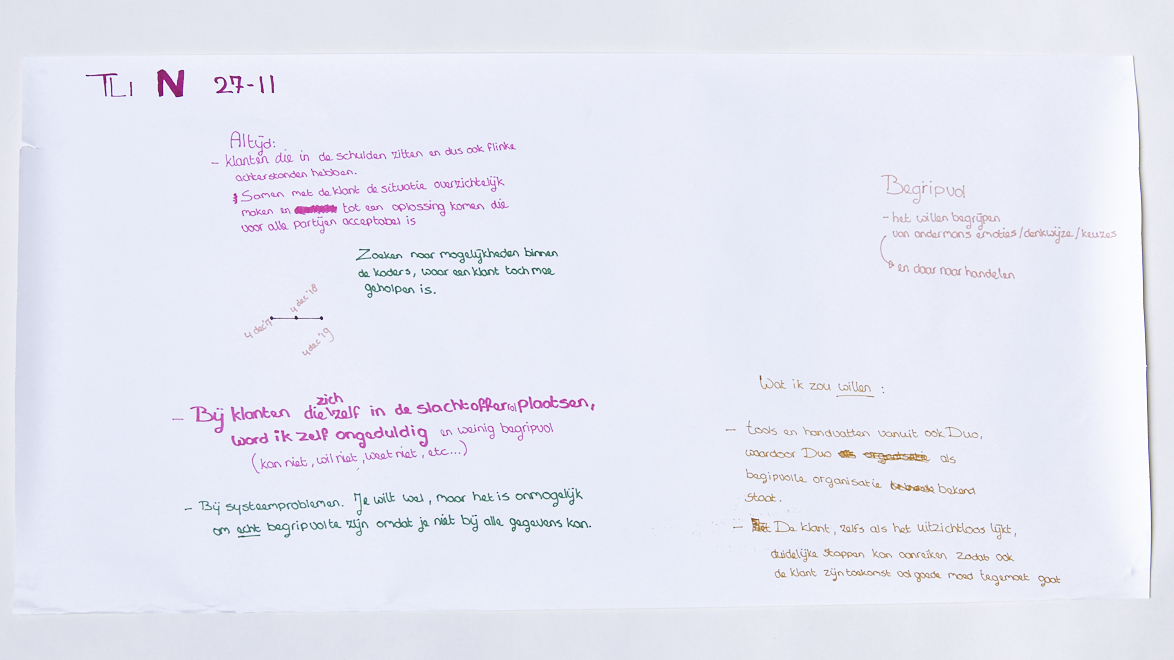 TLI N 27-11
Altijd:
- klanten die in de schulden zitten en dus ook flinke
achterstanden hebben.
Samen met de klant de situatie overzichtelijk
maken en tot een oplossing komen die
voor alle partijen acceptabel is
Zoeken naar mogelijkheden binnen
de kaders, waar een klant toch mee
geholpen is.
4 dec '18
4 dec '17
4 dec '19
- Bij klanten die zich zelf in de slachtofferrol plaatsen,
word ik zelf ongeduldig en weinig begripvol
(kan niet, wil niet, weet niet, etc...)
- Bij systeemproblemen. Je wilt wel, maar het is onmogelijk
om echt begripvol te zijn omdat je niet bij alle gegevens kan.
Begripvol
- het willen begrijpen
van andermans emoties/denkwijze/keuzes
en daar naar handelen
Wat ik zou willen :
- tools en handvatten vanuit ook Duo,
waardoor Duo als
begipvolle organisatie bekend
staat.
- De klant, zelfs als het uitzichtloos lijkt,
duidelijke stappen kan aanreiken zodat ook
de klant zijn toekomst vol goede moed tegemoet gaat